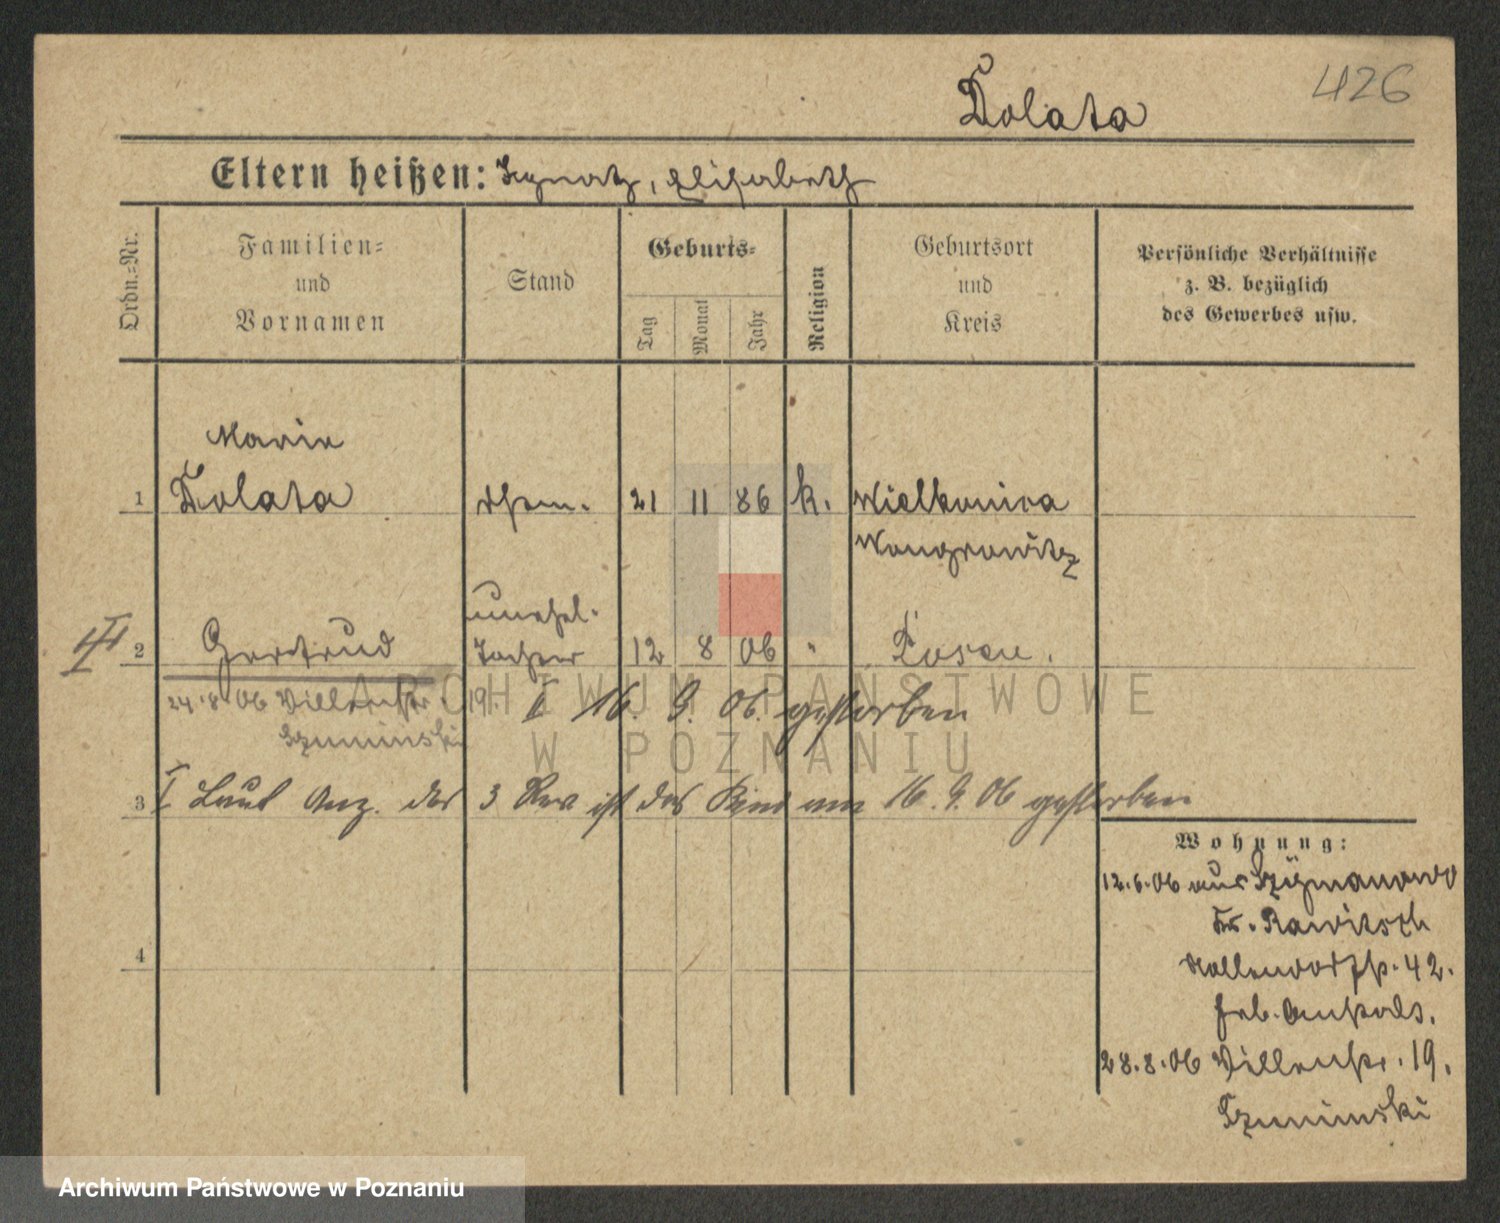 426
Dolata
Eltern heißen: Ignatz, Elisabeth
Ordn.-Nr.
Familien- und Vornamen
Stand
Geburts-
Tag
Monat
Jahr
Religion
Geburtsort und Kreis
Persönliche Verhältnisse z. B. bezüglich des Gewerbes usw.
Marie
1 Dolata 21 11 86 k. Wielkonica
Wongrowitz
unehel.
2 Gertrud Tochter 12 8 06 " Posen.
24.8.06 Villenstr. 19. I 16. 9. 06. gestorben
Szuminski
3 I Laut Anz. des 3 Rev ist das Kind am 16. 9. 06 gestorben
Wohnung:
12.6.06 aus Szymanowo
Kr. Rawitsch
42.
Heb. Anstalt.
28.8.06 Villenstr. 19.
Szuminski
4
ARCHIWUM PAŃSTWOWE
W POZNANIU
Archiwum Państwowe w Poznaniu